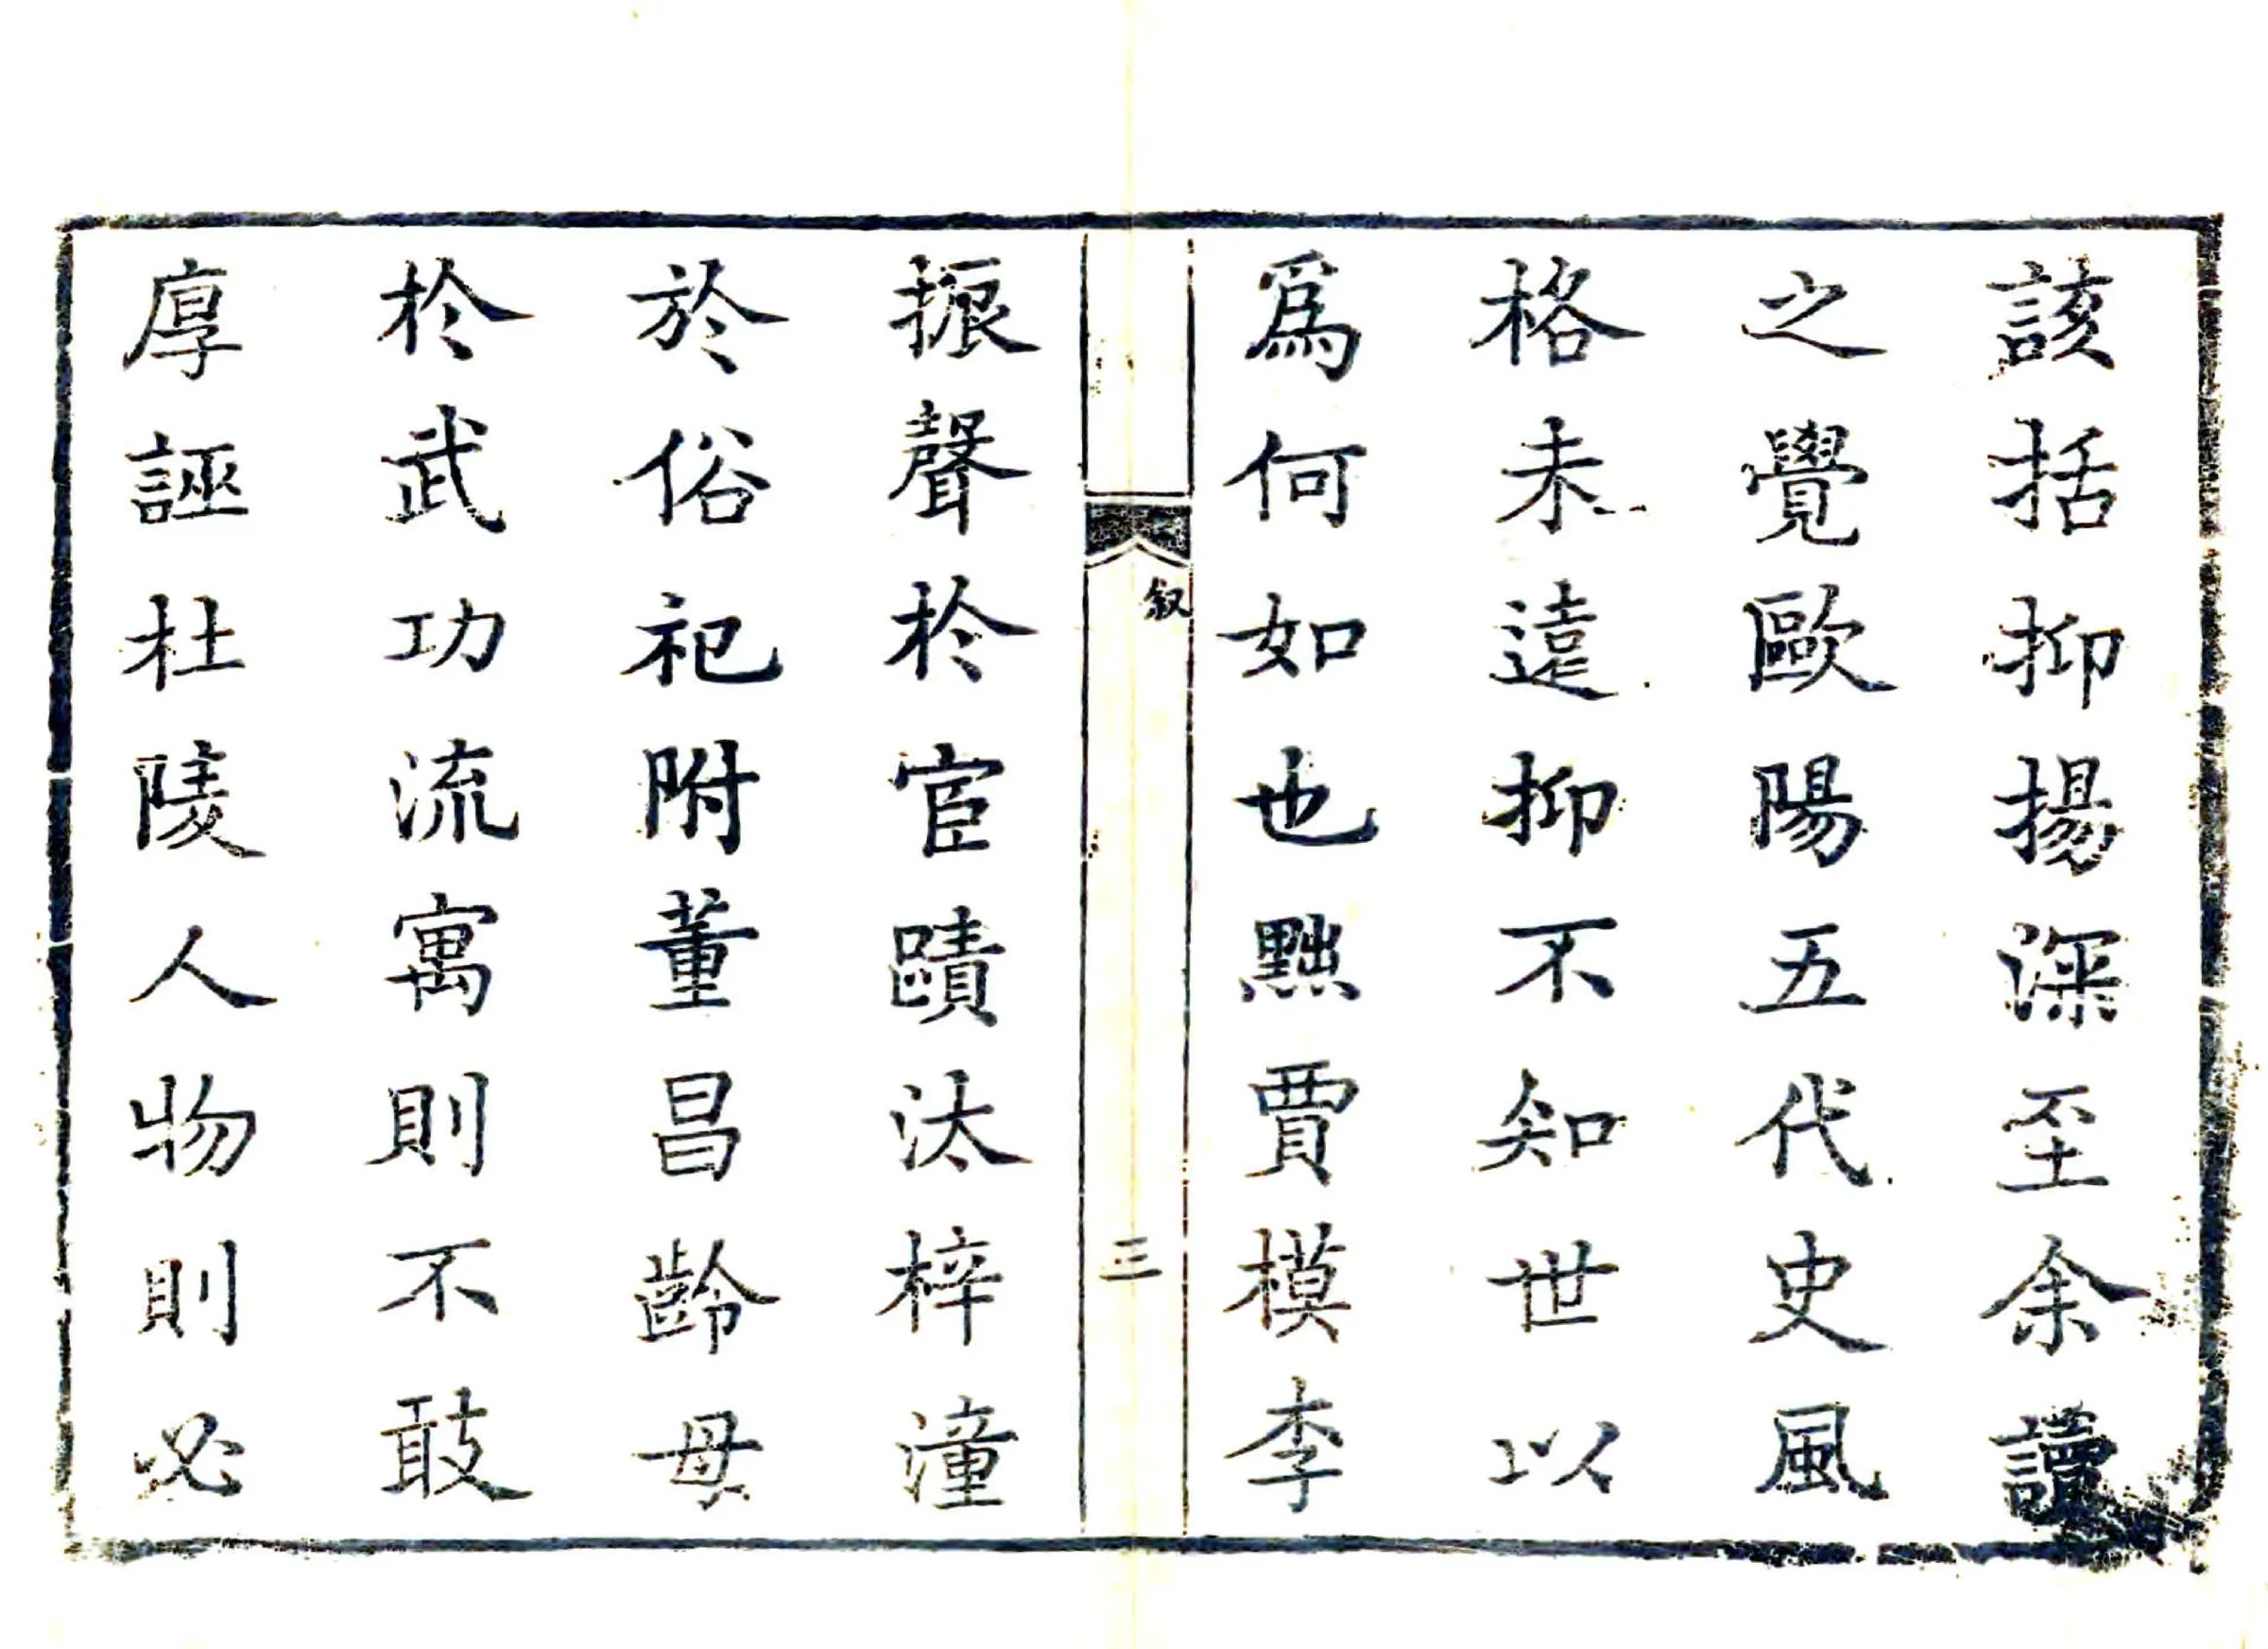 該括抑揚深至余讀
之覺歐陽五代史風
格未遠抑不知世以
爲何如也黜賈模李
叙
三
振聲於宦蹟汰梓潼
於俗祀附董昌齡母
於武功流寓則不敢
厚誣杜陵人物則必